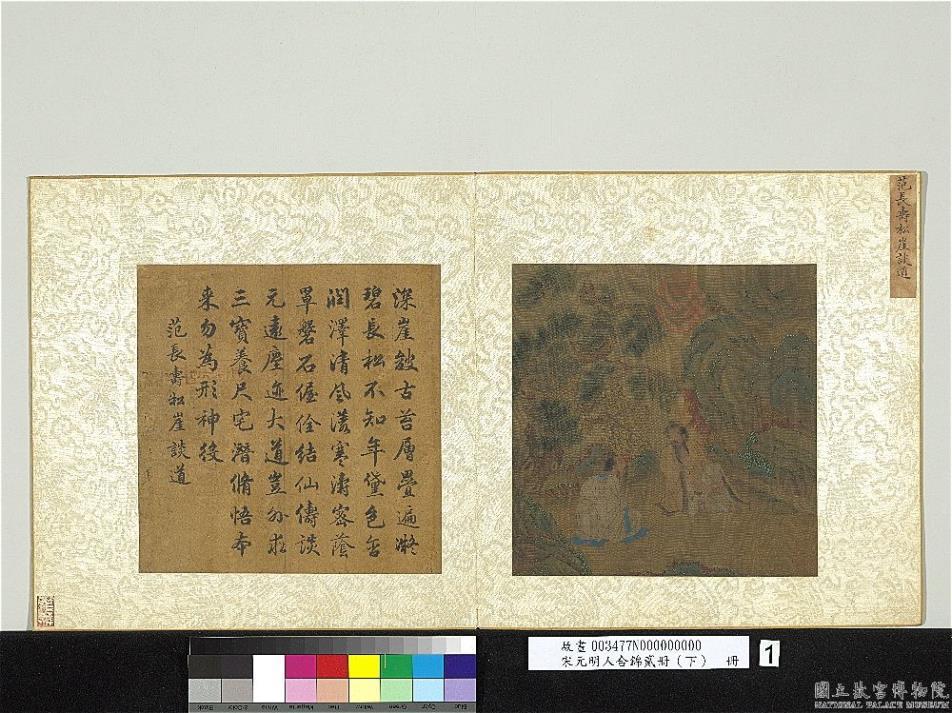 范長壽松崖談道
深崖皴古苔層疊遍凝
碧長松不知年黛色含
潤澤清風蕩寒濤密蔭
罩磐石偓佺結仙儔談
元遠塵迹大道豈外求
三寶養尺宅潛脩悟本
来勿為形神役
范長壽松崖談道
故畫 003477N000000000
宋元明人合錦貳冊(下) 冊
1
國立故宮博物院
NATIONAL PALACE MUSEUM